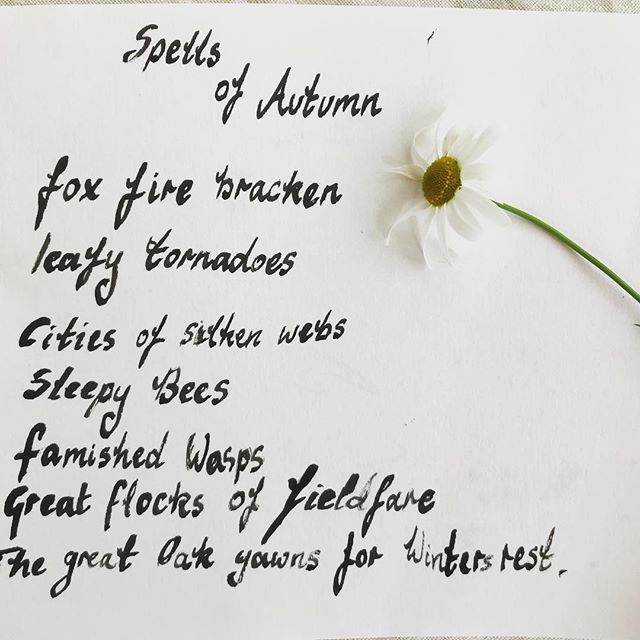 Spells
of Autumn
fox fire bracken
leafy tornadoes
Cities of silken webs
Sleepy Bees
famished Wasps
Great flocks of fieldfare
The great Oak yawns for Winters rest.